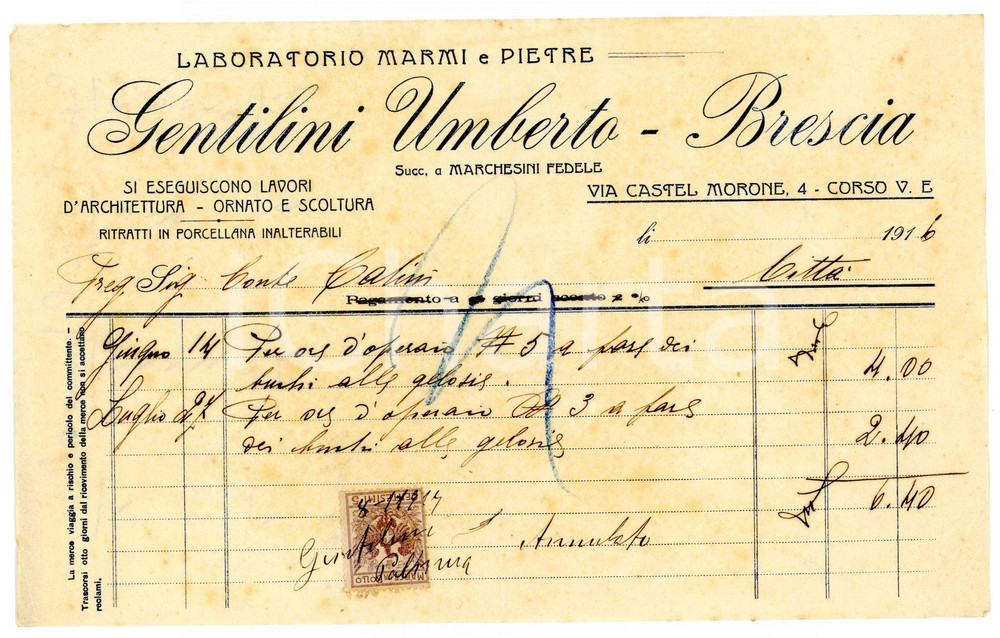 LABORATORIO MARMI e PIETRE
Gentilini Umberto - Brescia
Succ. a MARCHESINI FEDELE
SI ESEGUISCONO LAVORI
D'ARCHITETTURA - ORNATO E SCOLTURA
RITRATTI IN PORCELLANA INALTERABILI
VIA CASTEL MORONE, 4 - CORSO V. E
li 1916
Preg Sig Conte Calini Città
Pagamento a giorni sconto %
Giugno 14 Per ore d'operaio N 5 a fare dei
buchi alle gelosie. 4.00
Luglio 27 Per ore d'operaio N 3 a fare
dei buchi alle gelosie 2.40
6.40
CENTESIMI 5
8
Gentilini
Annullato
Palmira
MARCA BOLLO
La merce viaggia a rischio e pericolo del committente. -
Trascorsi otto giorni dal ricevimento della merce non si accettano
reclami.